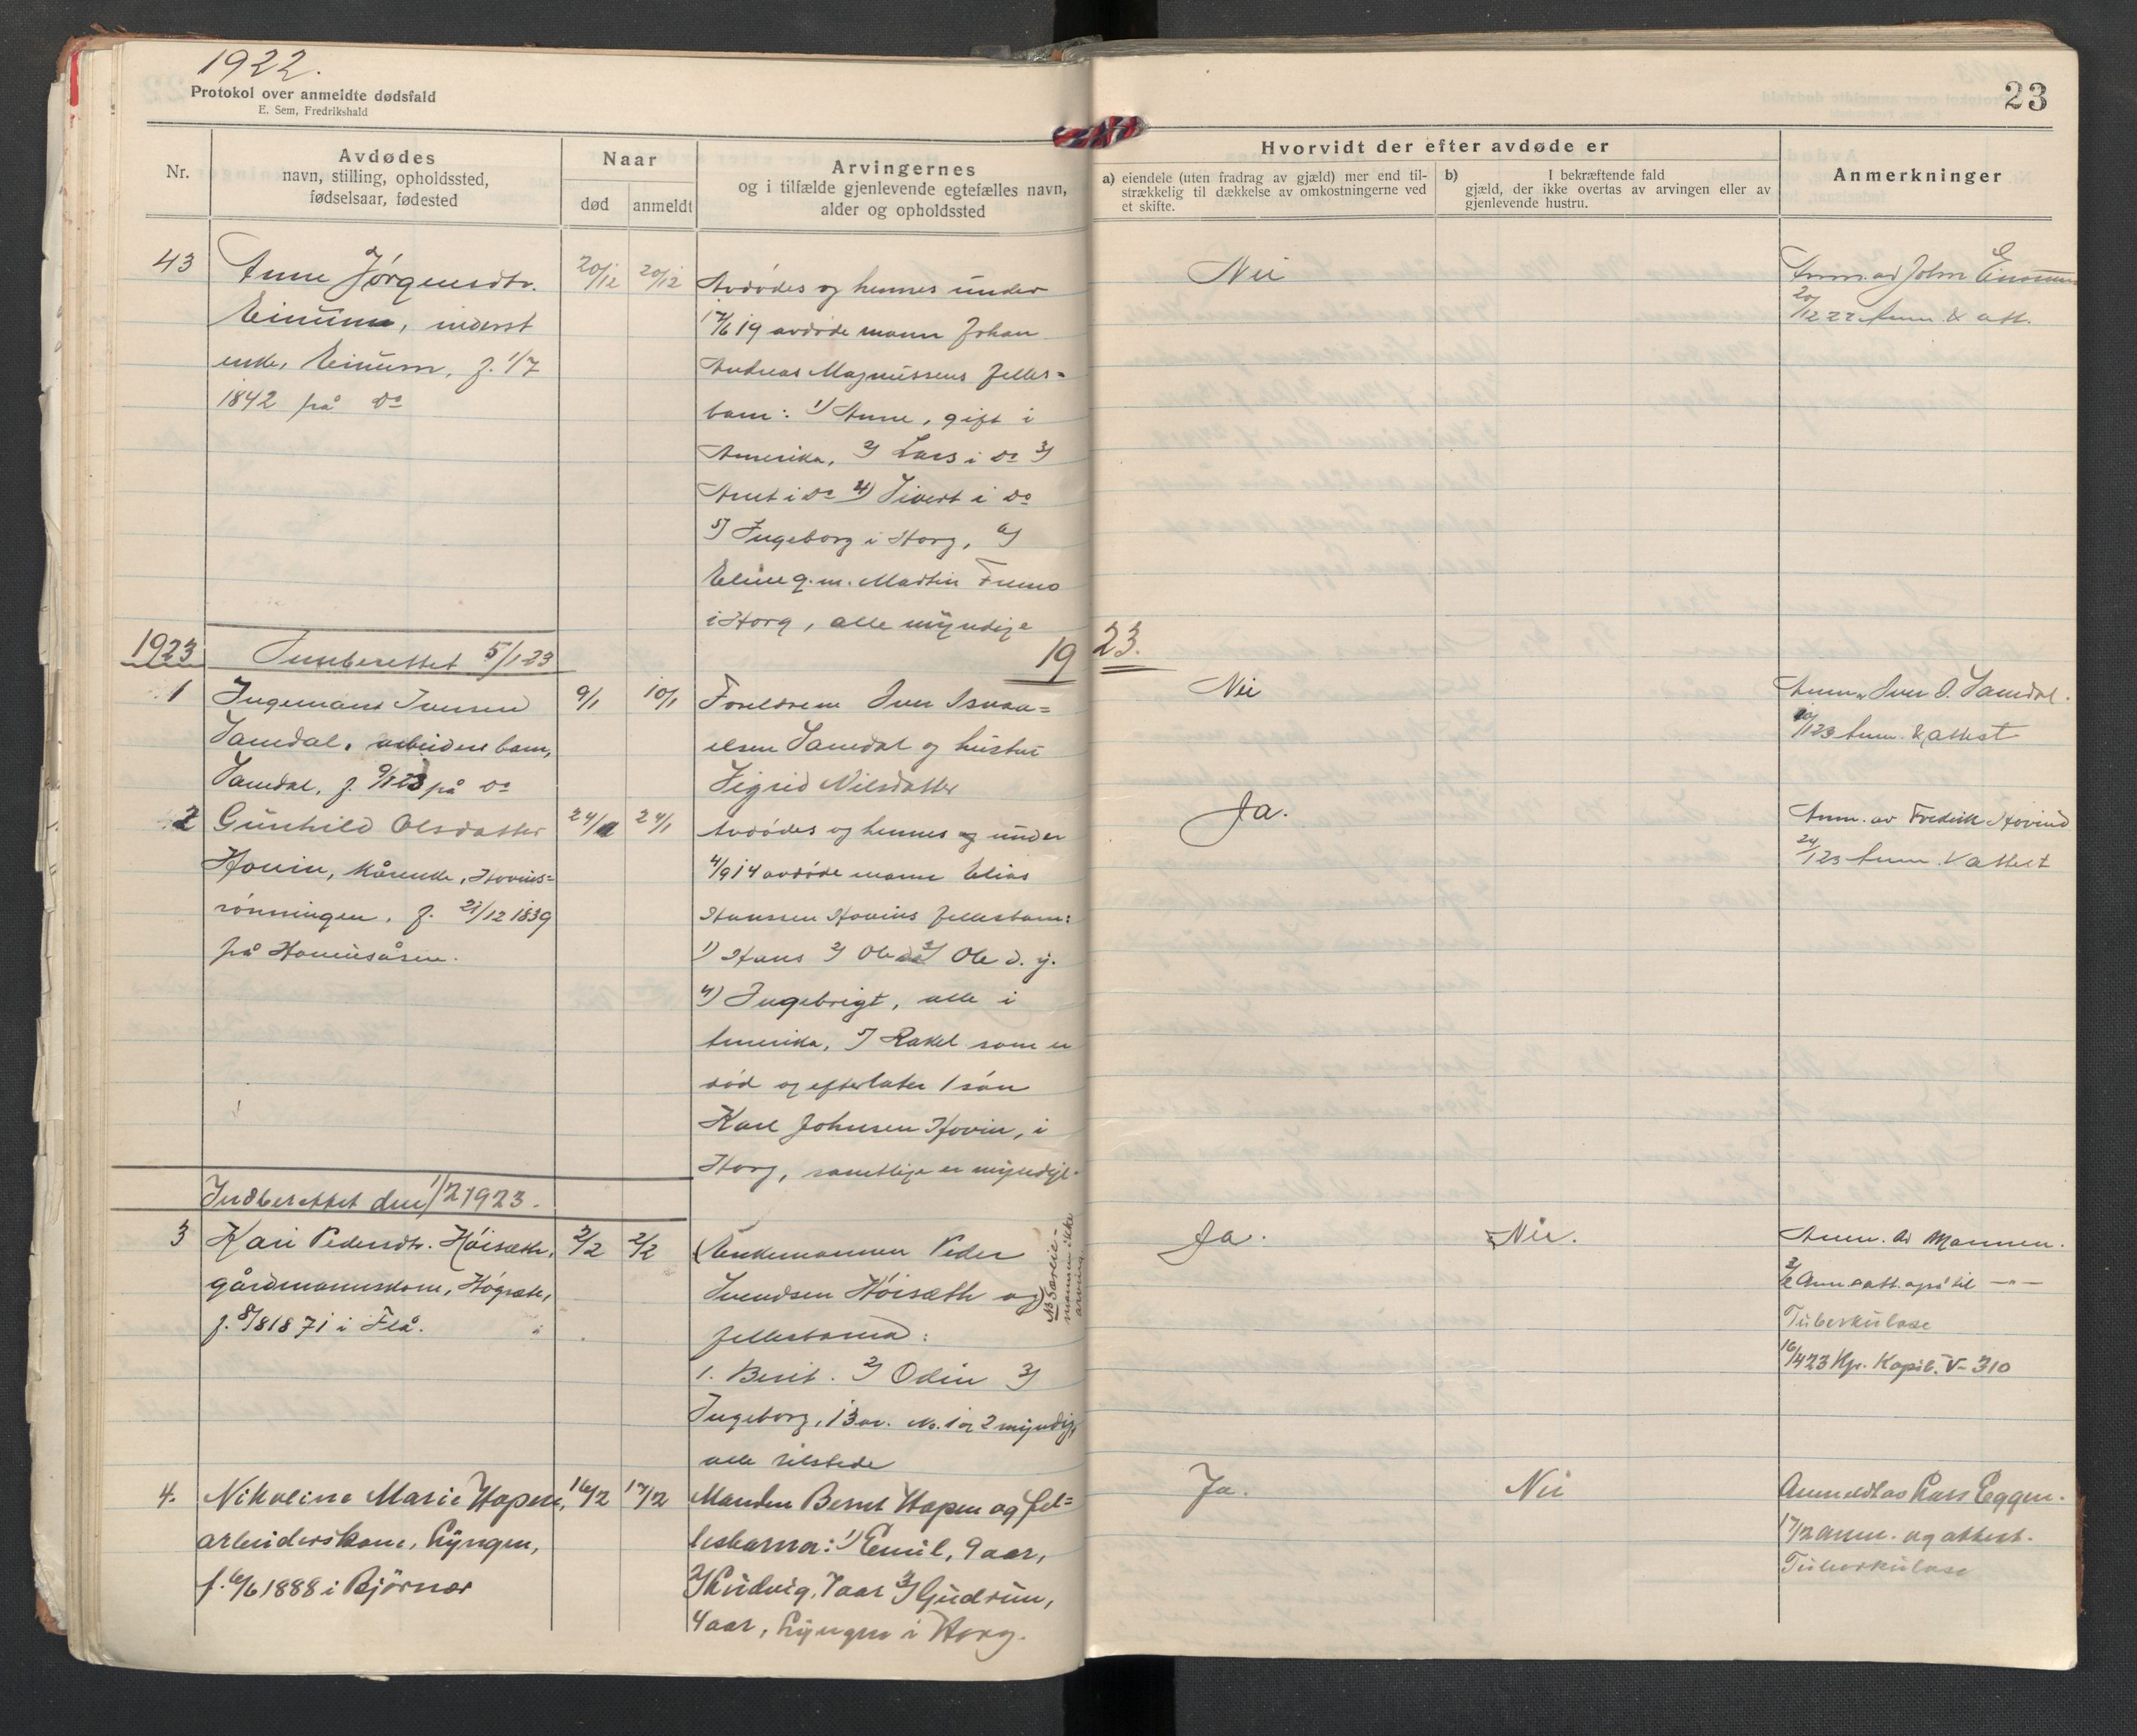 1922.
Protokol over anmeldte dødsfald
E. Sem, Fredrikshald
23
Nr.
Avdødes
navn, stilling, opholdssted,
fødselsaar, fødested
Naar
død
anmeldt
Arvingernes
og i tilfælde gjenlevende egtefælles navn,
alder og opholdssted
Hvorvidt der efter avdøde er
a) eiendele (uten fradrag av gjæld) mer end til-
strækkelig til dækkelse av omkostningerne ved
et skifte.
b) I bekræftende fald
gjæld, der ikke overtas av arvingen eller av
gjenlevende hustru.
Anmerkninger
43
Anne Jørgensdtr.
Einum, inderst
enke, Einum, f. 1/7
1842 på do
20/12
20/12
Avdødes og hennes under
17/6 19 avdøde mann Johan
Andreas Magnussens felles=
barn: 1) Anne, gift i
Amerika, 2) Lars i do 3)
Arnt i do 4) Sivert i do
5) Ingeborg i Horg, 6)
Eline g. m. Martin Fremo
i Horg, alle myndige
Nei
Anm. av John Einum
20/12 22 Anm. & att.
Innberettet 5/1 23
1923
1923.
1
Ingemann Iversen
Samdal, arbeiders barn,
Samdal, f. 9/1 23 på do
9/1
10/1
Foreldrene Iver Isra=
elsen Samdal og hustru
Sigrid Nilsdatter
Nei
Anm. Iver I. Samdal.
10/1 23 Anm. & attest
2
Gunhild Olsdatter
Hovin, kårenke, Hovins=
rönningen, f. 21/12 1839
på Hovinsåsen.
24/1
24/1
Avdødes og hennes og under
4/9 14 avdøde mann Elias
Hanssen Hovins fellesbarn:
1) Hans 2) Ole 3) Ole d. y.
4) Ingebrigt, alle i
Amerika, 5) Rakel som er
död og efterlater 1 sön
Karl Johnsen Hovin, i
Horg, samtlige er myndige.
Ja.
Anm. av Fredrik Hovind
24/1 23 Anm. & attest
Indberettet den 1/2 1923.
3
Kari Pedersdtr. Höisæth,
gårdmannskone, Högsæte,
f. 8/8 1871 i Flå.
2/2
2/2
Enkemannen Peder
Svendsen Höisæth og
fellesbarna:
1. Berit. 2) Odin 3)
Ingeborg, 13 år. No. 1 og 2 myndig,
alle tilstede
NB Særeie-
mannen ikke
arving
Ja.
Nei.
Anm. av Mannen.
2/2 Anm & att. også til —"—
Tuberkulose
16/4 23 Kapit. V- 310
4.
Nikoline Marie Hopen,
arbeiderskone, Lyngen,
f. 6/6 1888 i Björnör
16/2
17/2
Manden Bernt Hopen og fel=
lesbarna: 1) Emil, 9 aar,
2) Ludvig, 7 aar 3) Gudrun,
4 aar, Lyngen i Horg.
Ja.
Nei
Anmeldt av Lars Eggen.
17/2 anm. og attest.
Tuberkulose